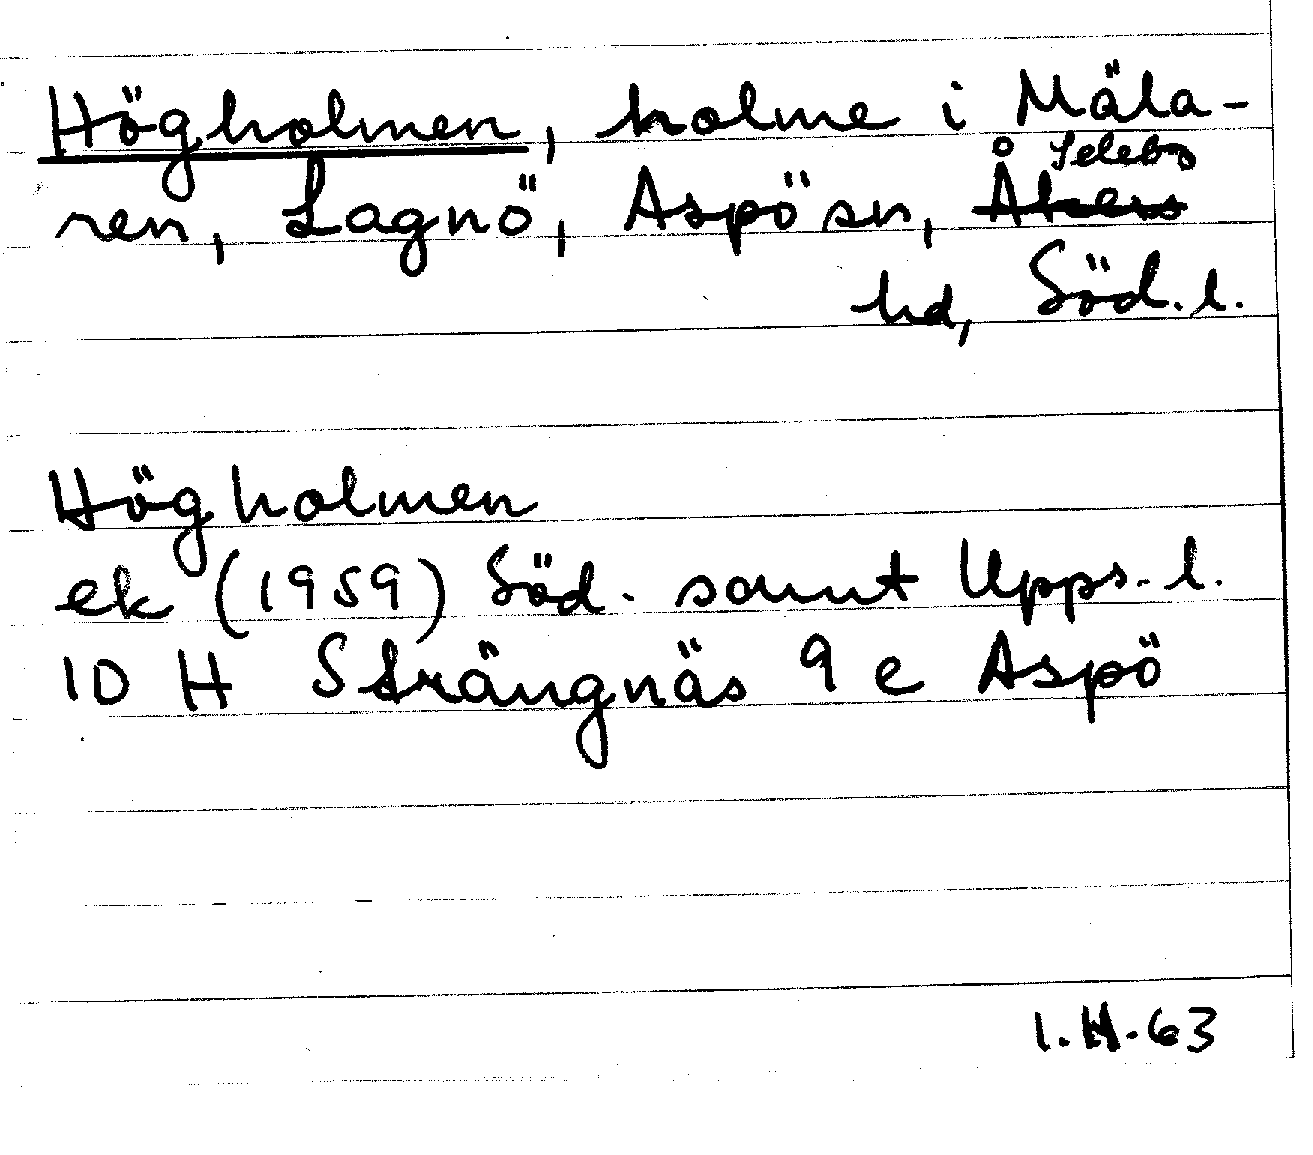 Högholmen, holme i Mäla-
ren, Lagnö, Aspö sn, Åkers Selebo
hd, Söd. l.
Högholmen
ek (1959) Söd. samt Upps. l.
10 H Strängnäs 9 e Aspö
I. H. 63